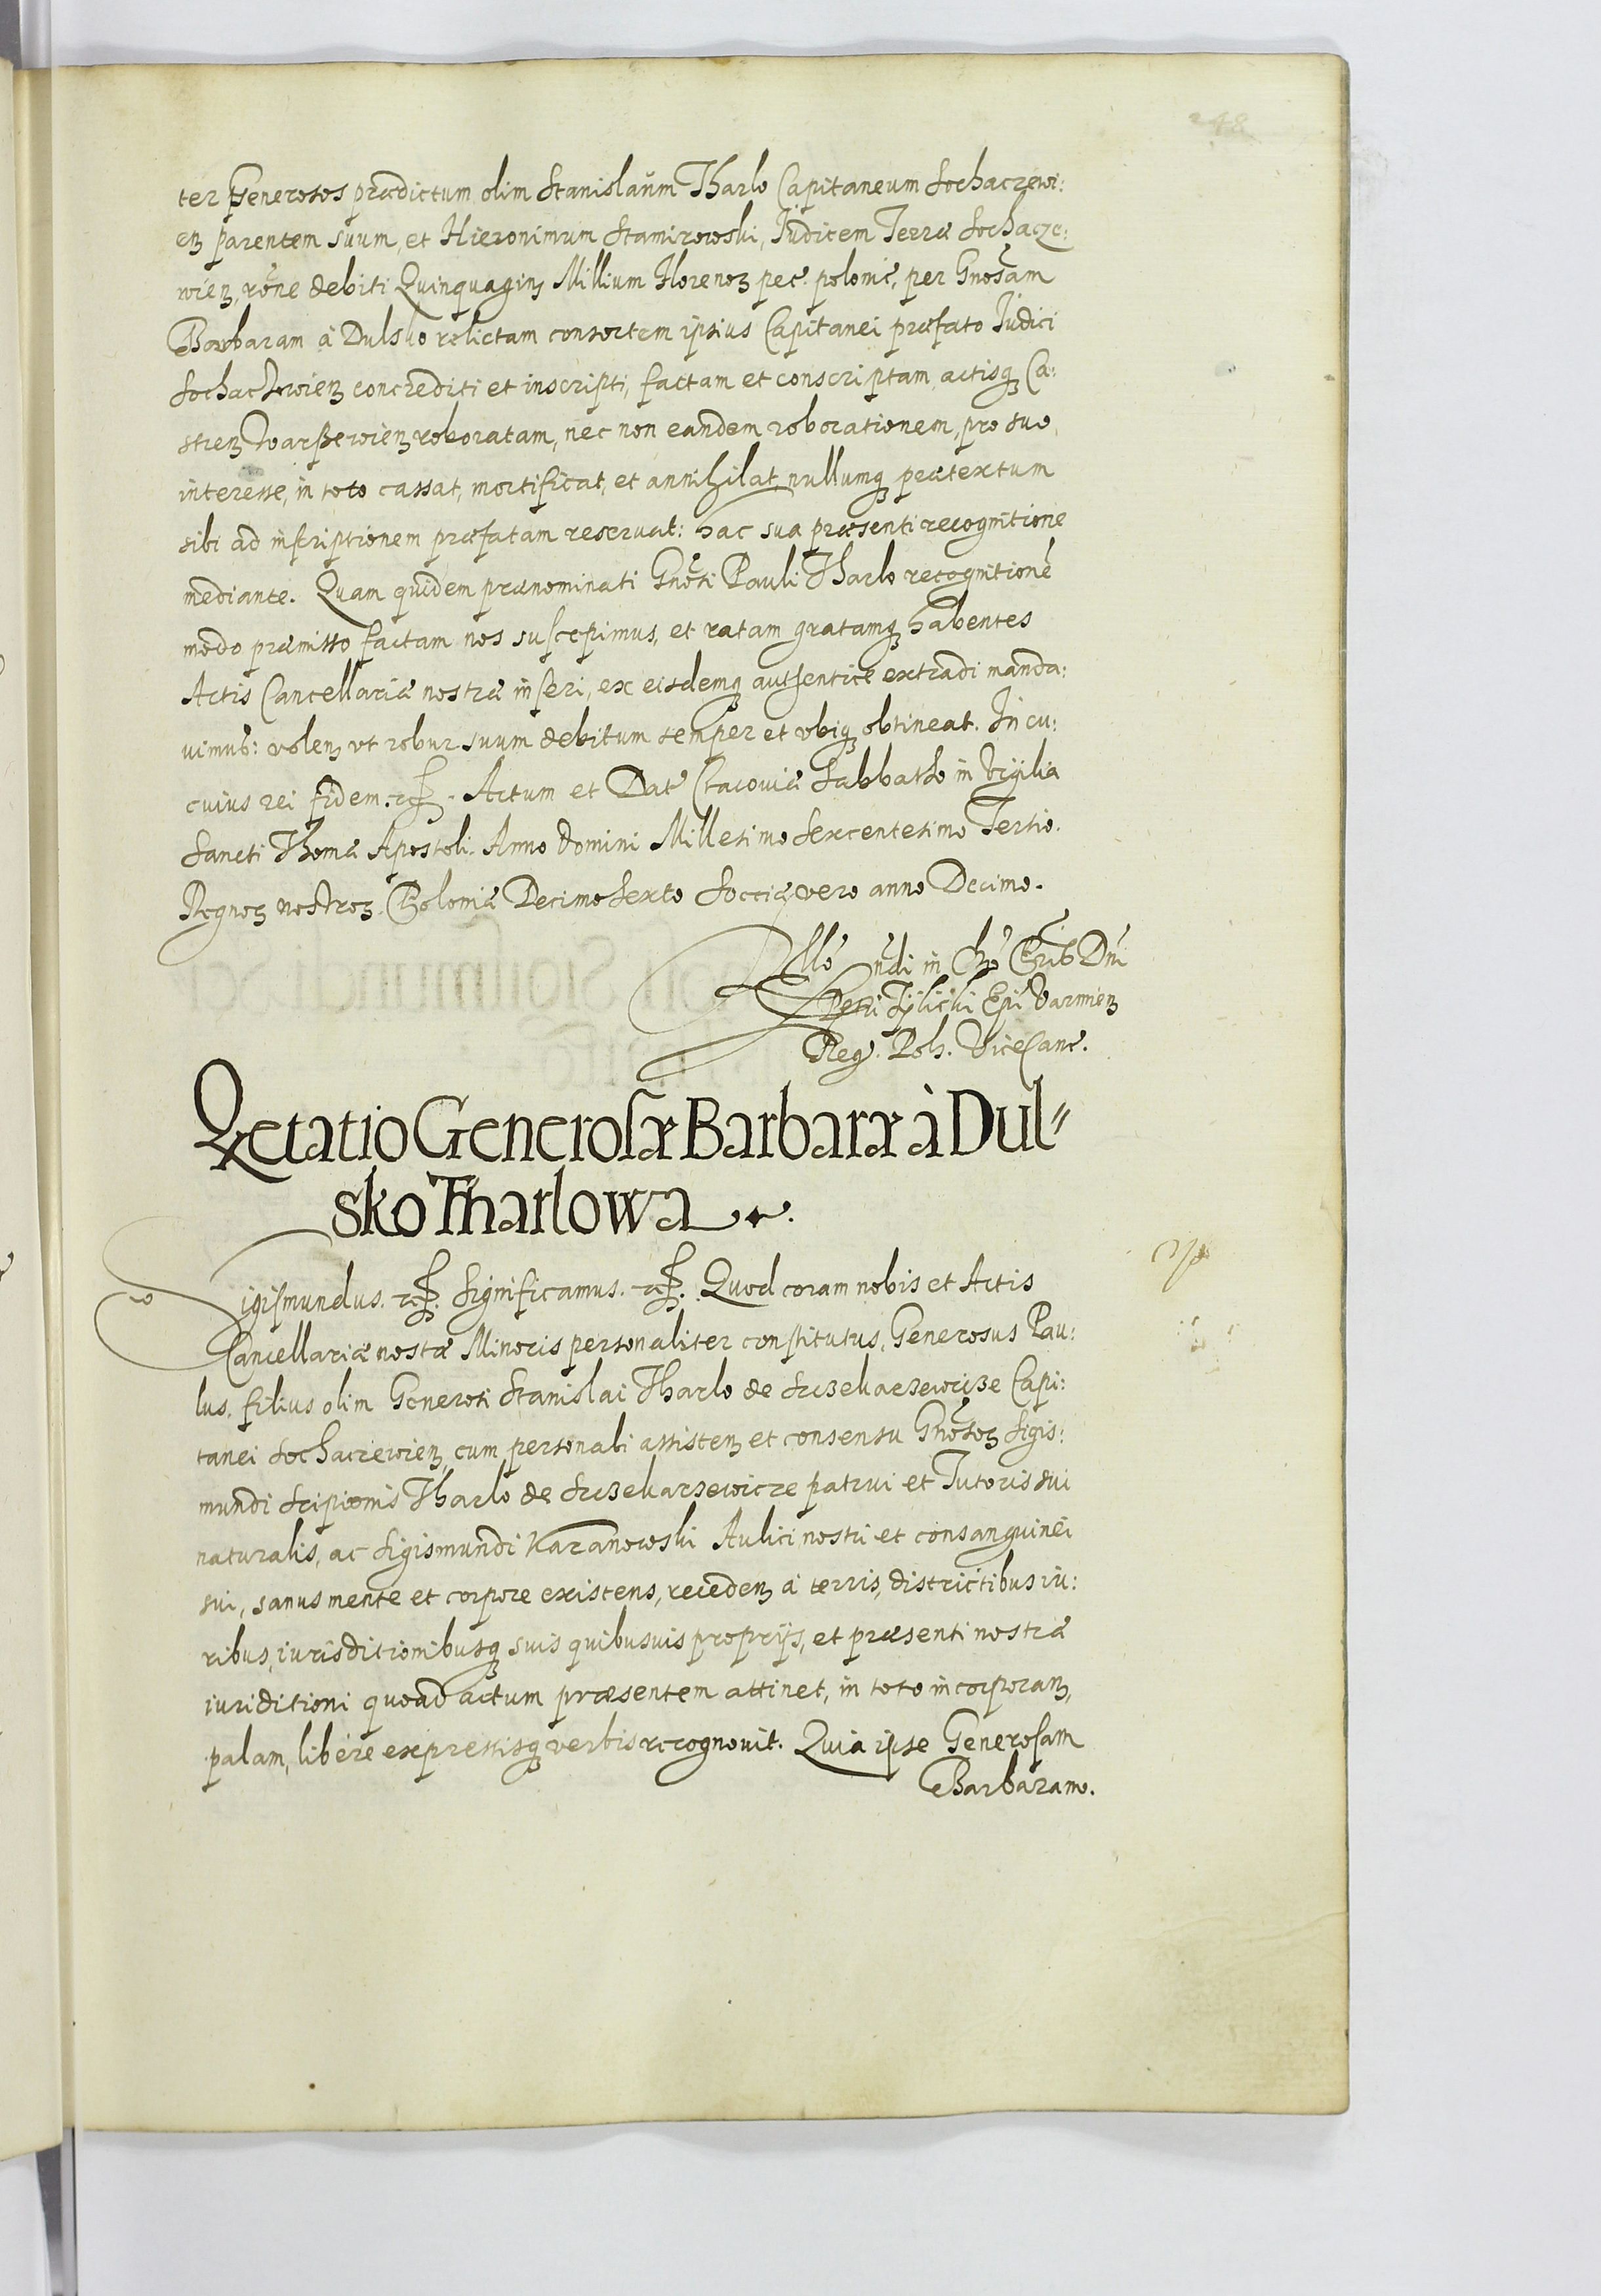 248
ter Generosos prædictum olim Stanislaum Tharlo Capitaneum Sochaczewi:
eñ parentem suum, et Hieronimum Stamirowski, Iudicem Terræ Sochacze:
wieñ, rõne debiti Quinquagint Millium Florenoꝝ pec: poloniẽ, per Gnosam
Barbaram à Dulsko relictam consortem ipsius Capitanei præfato Iudici
Sochaczewieñ concrediti et inscripti, factam et conscriptam, actisqꝫ Ca:
streñ Warszewieñ roboratam, nec non eandem roborationem, pro suo
interesse, in toto cassat, mortificat, et annihilat, nullumqꝫ prætextum
sibi ad inscriptionem præfatam reservat: hac sua præsenti recognitione
mediante. Quam quidem prænominati Gnosi Pauli Tharlo recognitionẽ
modo præmisso factam nos suscepimus, et ratam gratamqꝫ habentes
Actis Cancellariæ nostræ inseri, ex eisdemqꝫ authentice extradi manda:
uimus: volen, vt robur suum debitum semper et vbiqꝫ obtineat. In cu:
cuius rei fidem. etc. Actum et Dat Cracoviæ Sabbatho in Vigilia
Sancti Thomæ Apostoli. Anno Domini Millesimo Sexcentesimo Tertio.
Regnoꝝ nostroꝝ Poloniæ Decimo Sexto Socciæ vero anno Decimo.
Rllõ ndi in Chõ Pris Dni
Petri Tylicki Epi Varmieñ
Reg. Pol. ViceCanc.
Qetatio Generosæ Barbaræ à Dul=
sko Tharlowa.
Sigismundus. etc. Significamus. etc. Quod coram nobis et Actis
Cancellariæ nostræ Minoris personaliter constitutus, Generosus Pau:
lus, filius olim Generosi Stanislai Tharlo de Sczekarzewicze Capi:
tanei Sochaczewieñ, cum personali assisteñ et consensu Gnosoꝝ Sigis:
mundi Scipionis Tharlo de Sczekarzewicze patrui et Tutoris sui
naturalis, ac Sigismundi Kazanowski Aulici nostri et consanguinei
sui, sanus mente et corpore existens, recedeñ à terris, districtibus iu:
ribus, iurisditionibusqꝫ suis quibusuis proprijs, et præsenti nostræ
iuriditioni quoad actum præsentem attinet, in toto incorporañ,
palam, libere expressisqꝫ verbis recognouit. Quia ipse Generosam
Barbaram.